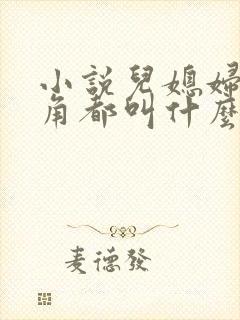 小說兒媳婦
角都叫什麼
麦德發